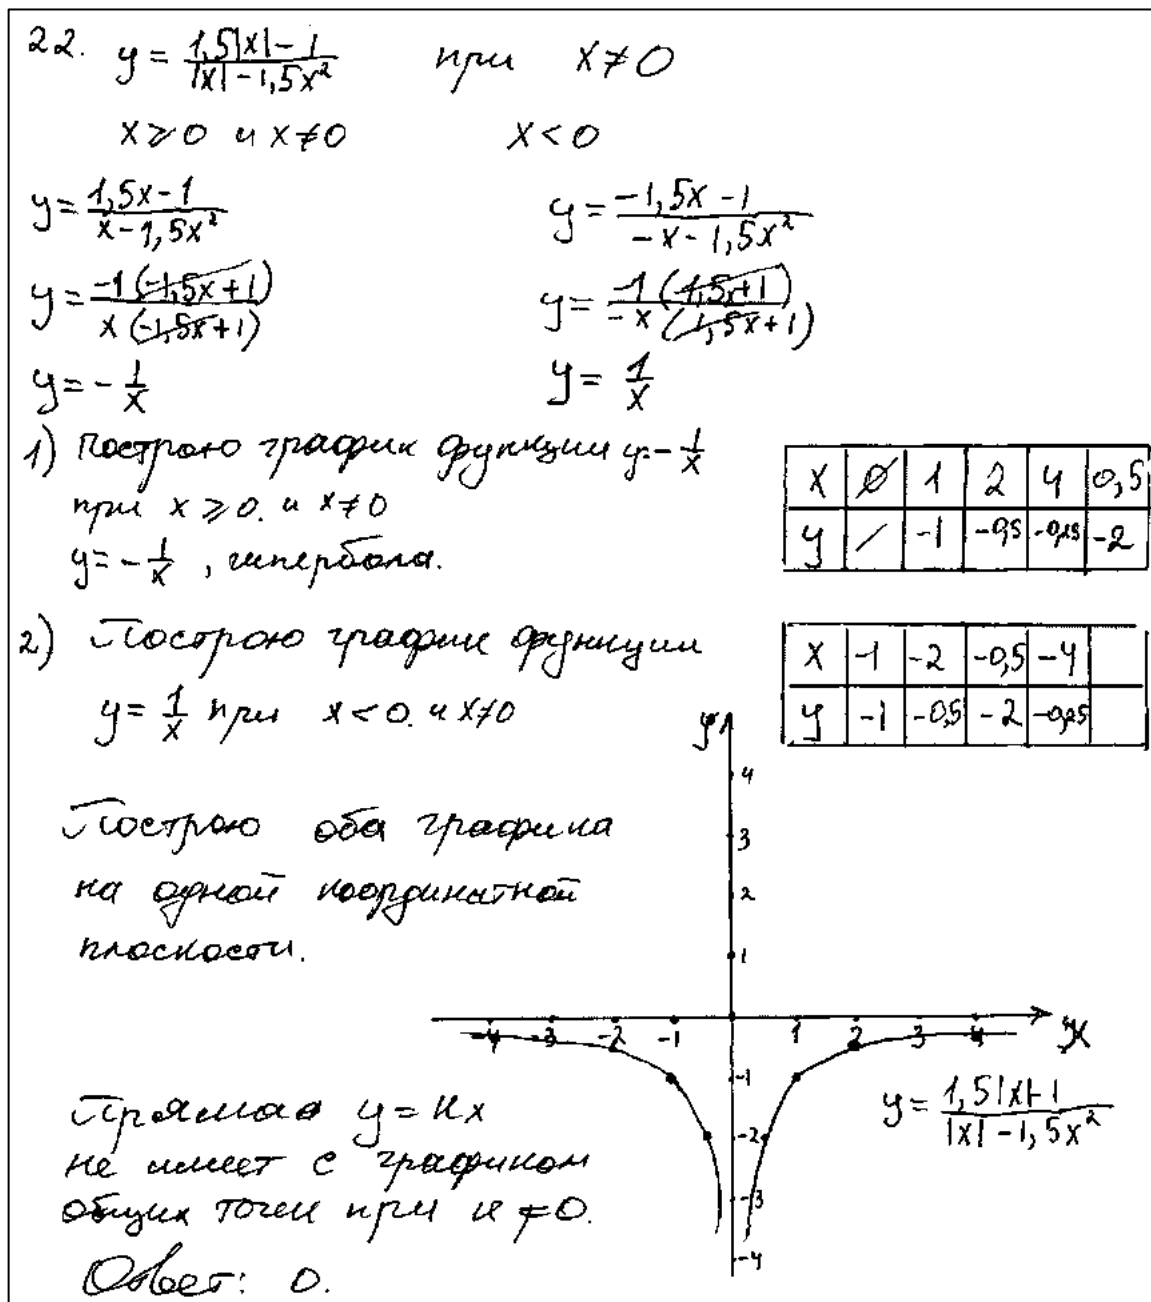 22. y = (1,5|x| - 1)/(|x| - 1,5x²) при x ≠ 0
x ⩾ 0 и x ≠ 0 x < 0
y = (1,5x - 1)/(x - 1,5x²) y = (-1,5x - 1)/(-x - 1,5x²)
y = -1(-1,5x + 1)/x(-1,5x + 1) y = -1(1,5x + 1)/-x(1,5x + 1)
y = - 1/x y = 1/x
1) Построю график функции y = - 1/x
при x ⩾ 0. и x ≠ 0
y = - 1/x , гипербола.
x 0 1 2 4 0,5
y / -1 -0,5 -0,25 -2
2) Построю график функции
y = 1/x при x < 0. и x ≠ 0
x -1 -2 -0,5 -4
y -1 -0,5 -2 -0,25
Построю оба графика
на одной координатной
плоскости.
y
4
3
2
1
-4 -3 -2 -1 1 2 3 4 x
-1
-2
-3
-4
y = (1,5|x| - 1)/(|x| - 1,5x²)
Прямая y = kx
не имеет с графиком
общих точек при k ≠ 0.
Ответ: 0.